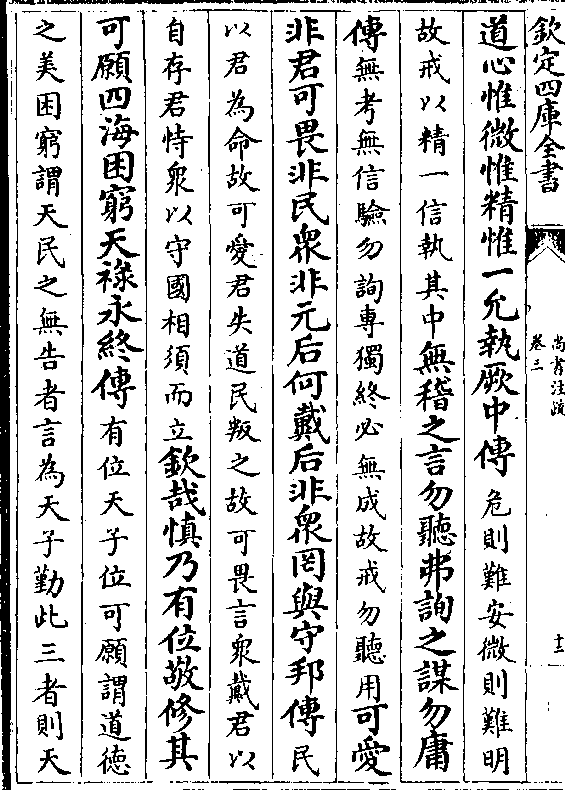 欽定四庫全書
尚書注疏
卷三
十二
道心惟微惟精惟一允執厥中傳危則難安微則難明
故戒以精一信執其中無稽之言勿聽弗詢之謀勿庸
傳無考無信驗勿詢專獨終必無成故戒勿聽用可愛
非君可畏非民衆非元后何戴后非衆罔與守邦傳民
以君為命故可愛君失道民叛之故可畏言衆戴君以
自存君恃衆以守國相須而立欽哉慎乃有位敬修其
可願四海困窮天祿永終傳有位天子位可願謂道德
之美困窮謂天民之無告者言為天子勤此三者則天